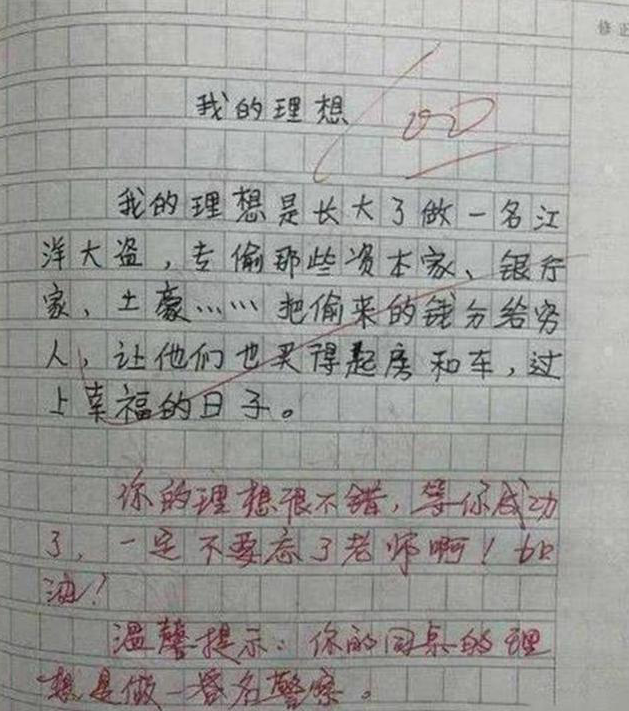 修正
我的理想
我的理想是长大了做一名江
洋大盗，专偷那些资本家、银行
家、土豪……把偷来的钱分给穷
人，让他们也买得起房和车，过
上幸福的日子。
你的理想很不错，等你成功
了，一定不要忘了老师啊！加
油！
温馨提示：你的同桌的理
想是做一名警察。